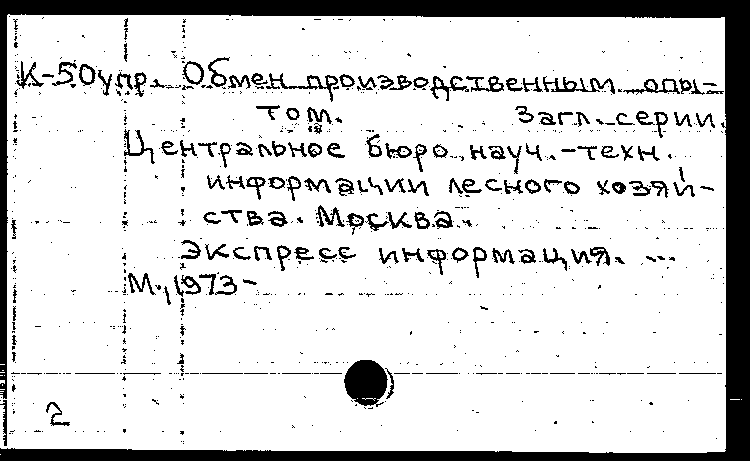 К-50упр. Обмен производственным опы-
том. Загл. серии.
Центральное бюро науч.-техн.
информации лесного хозяй-
ства. Москва.
Экспресс информация. ...
М., 1973-
2